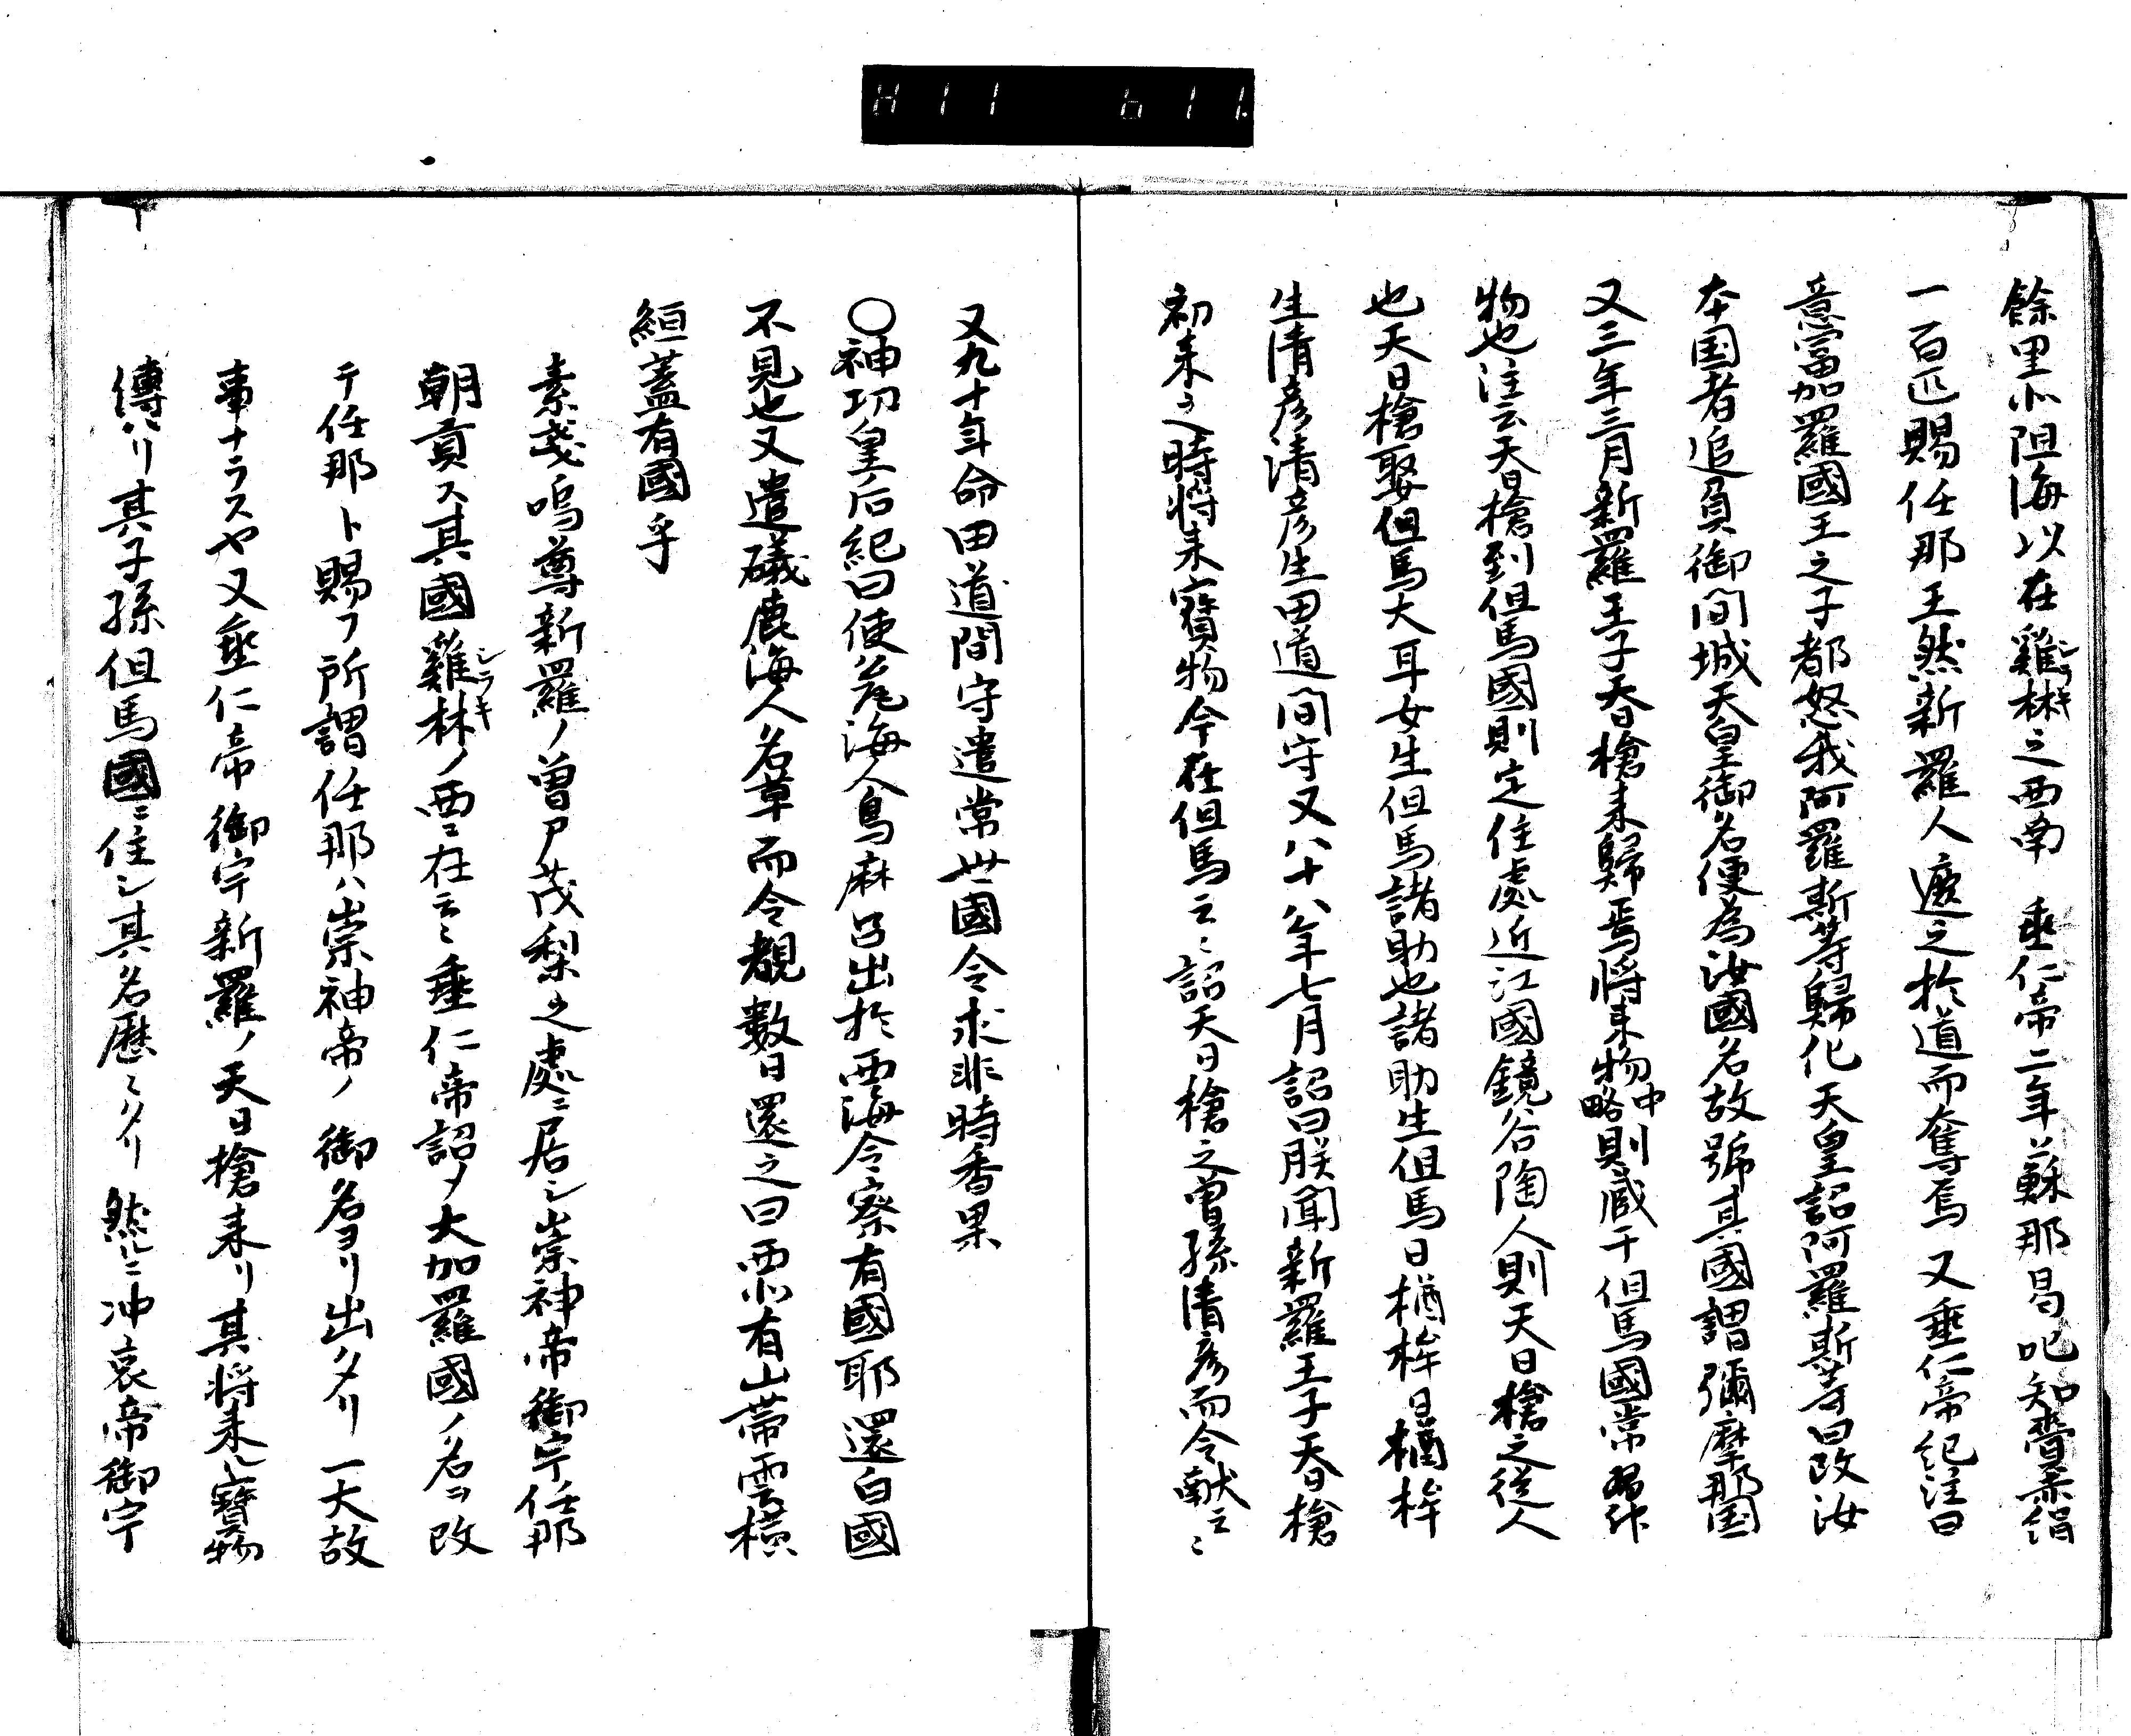 餘里北阻海以在雞林之西南 垂仁帝二年蘇那曷叱知賚赤絹
シラキ
一百匹賜任那王然新羅人遮之於道而奪焉又垂仁帝紀注曰
意富加羅國王之子都怒我阿羅斯等歸化天皇詔阿羅斯等曰改汝
本国者追負御間城天皇御名便為汝國名故號其國謂彌摩那国
又三年三月新羅王子天日槍来歸焉将来物中略則蔵于但馬國常為神
物也注云天日槍到但馬國則定住處近江國鏡谷陶人則天日槍之従人
也天日槍娶但馬大耳女生但馬諸助也諸助生但馬日楢桙日楢桙
生清彦清彦生田道間守又八十八年七月詔曰朕聞新羅王子天日槍
初来之時将来寶物今在但馬云〻詔天日槍之曽孫清彦而令献云〻
又九十年命田道間守遣常世國令求非時香果
〇神功皇后紀曰使吾瓮海人烏麻呂出於西海令察有國耶還白國
不見也又遣礒鹿海人名草而令覩數日還之曰西北有山帶雲横
絙蓋有國乎
素戔嗚尊新羅ノ曽尸茂梨之處ニ居シ崇神帝御宇任那
朝貢ス其國雞林ノ西ニ在云〻垂仁帝詔ノ大加羅國ノ名ヲ改
シラキ
テ任那ト賜フ所謂任那ハ崇神帝ノ御名ヨリ出タリ一大故
事ナラスヤ又垂仁帝御宇新羅ノ天日槍来リ其将来ル寶物
傳ハリ其子孫但馬國ニ住シ其名歴〻タリ然ルニ冲哀帝御宇